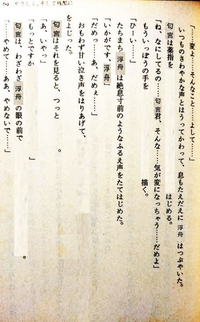 「……変よ、そんなこと……よして……」
いつものさわやかな声とはうってかわって、息もたえだえに 浮舟 はつぶやいた。
匂宮は薬指を はじめる。
「ね、なにしてるの……匂宮君、そんな……気が変になっちゃう……だめよ」
もういっぽうの手を 描く。
「ひーい……」
たちまち 浮舟 は絶息寸前のようなふるえ声をたてはじめた。
「いかがです、浮舟」
「だめっ……あ、だめぇ……」
おもわず甘い泣き声をはりあげて、
をよじった。
匂宮はそれを見ると、つっと
「もっとですか」
「あ、いやっ……」
匂宮は、わざわざ 浮舟 の眼の前で
「……やめて……ああ、やめないで……」